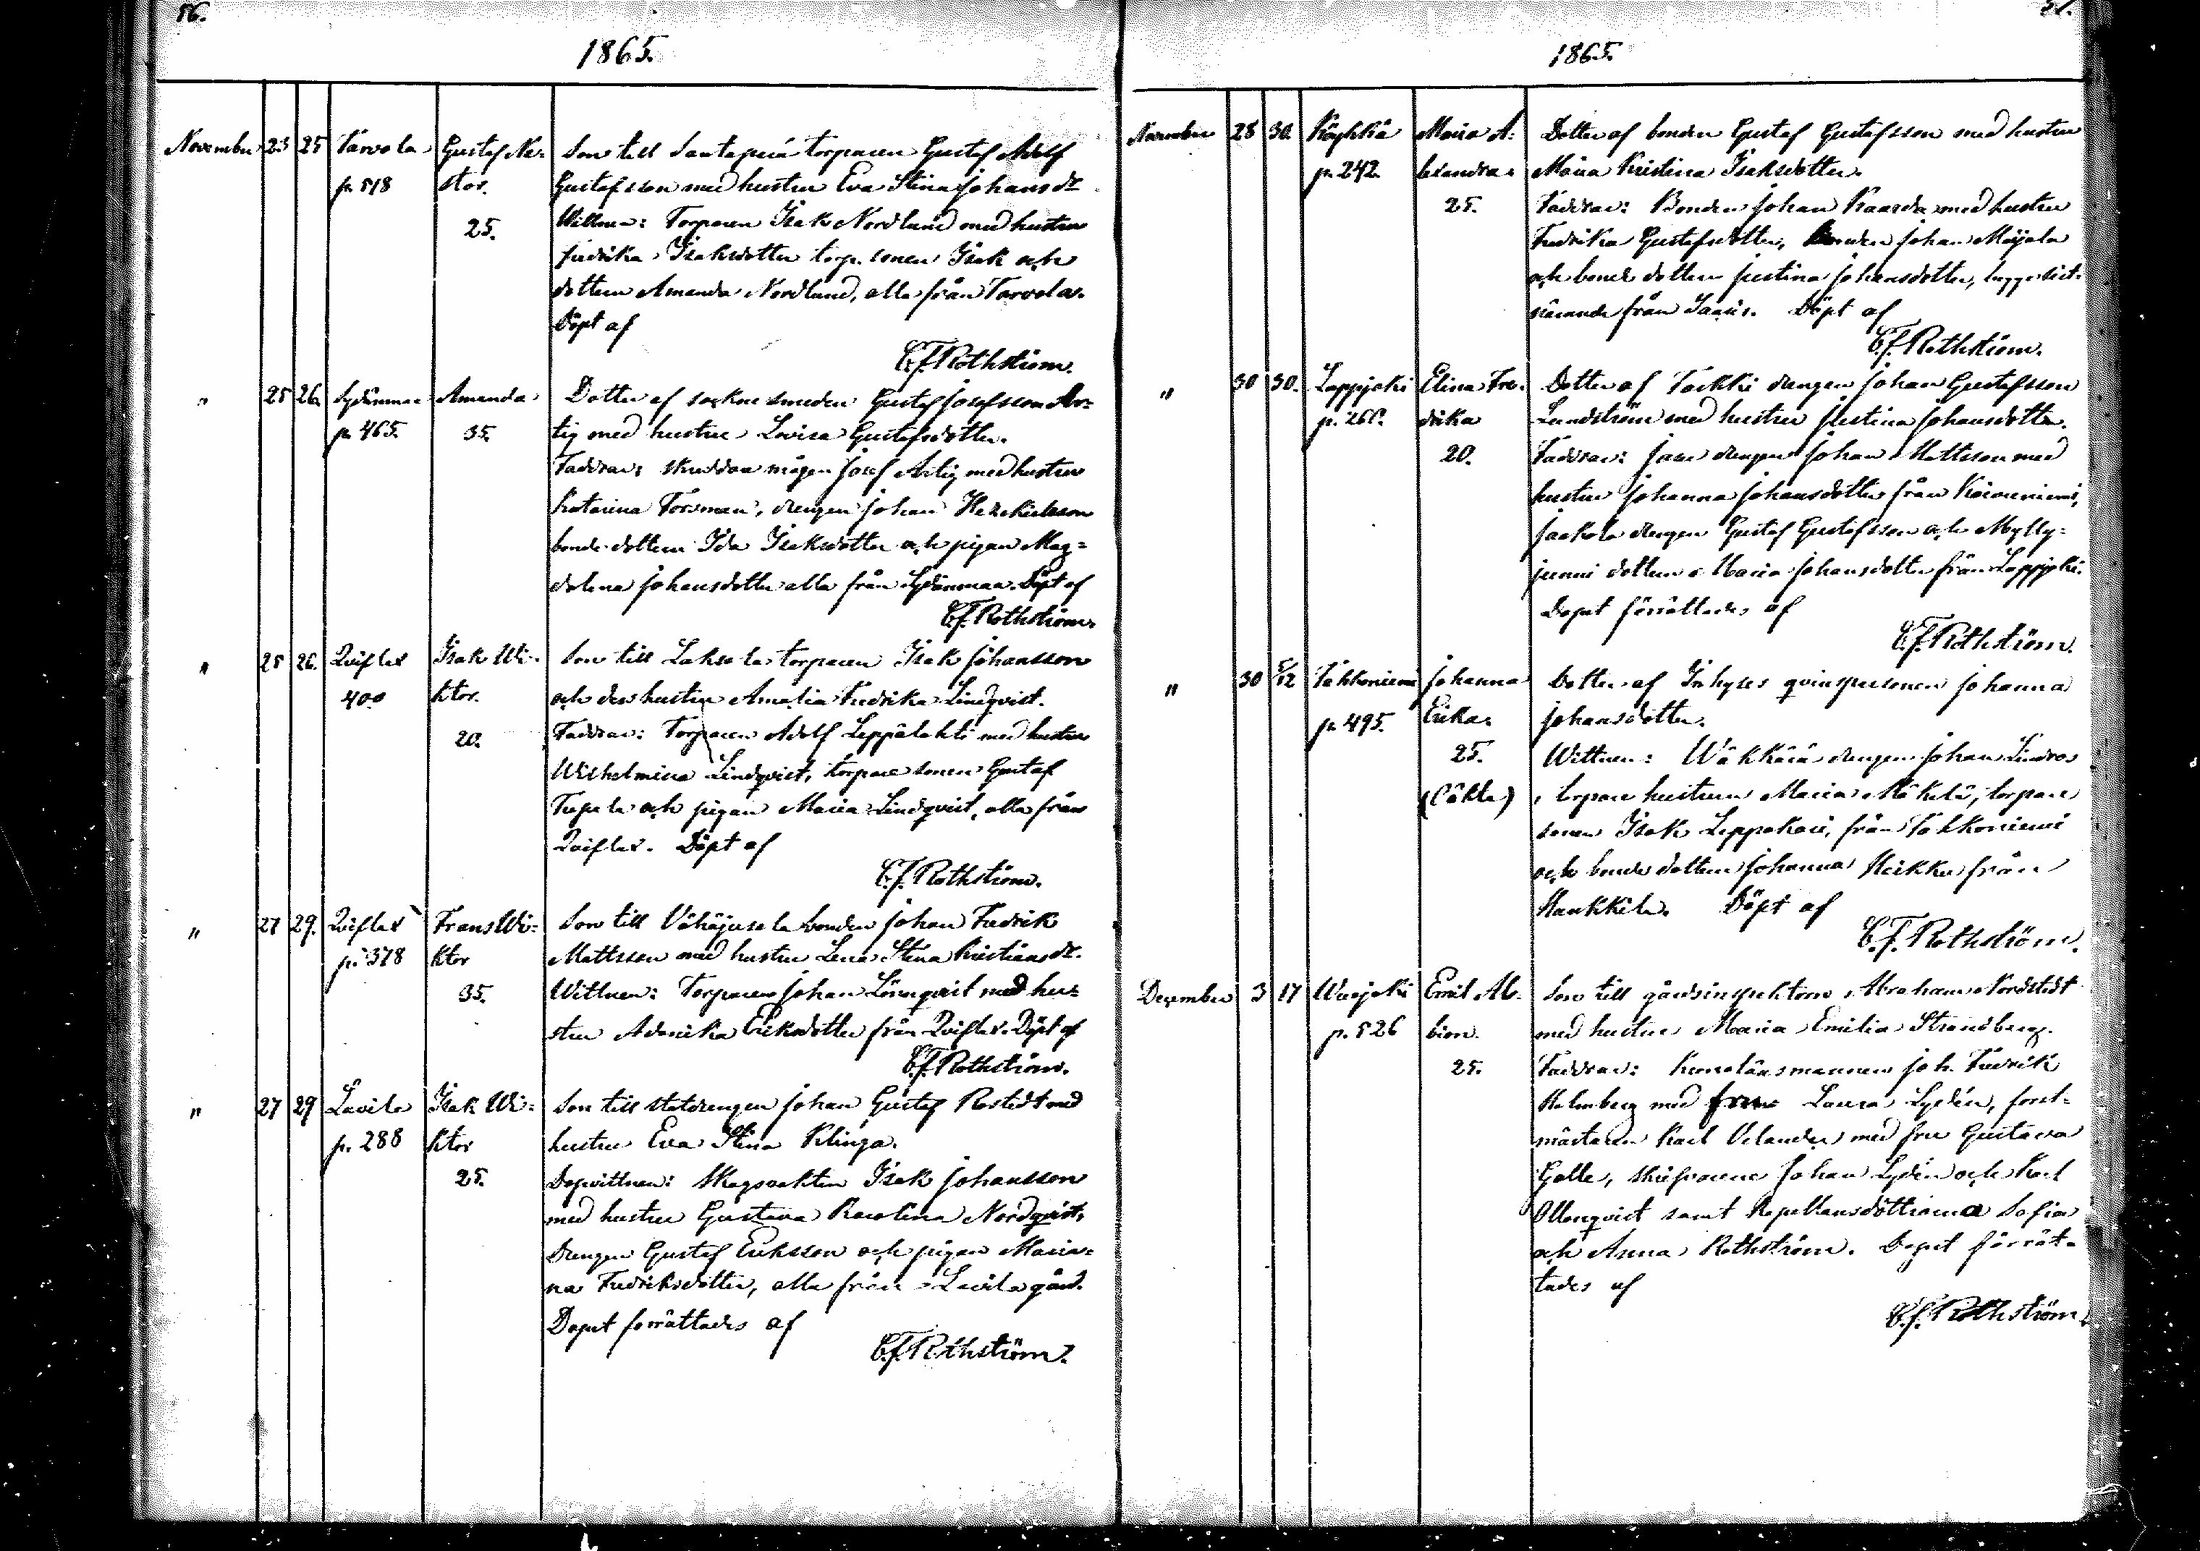 56.
1865.
November 23 25 Tarvola Gustaf Ne- Son till Santaperä torparen Gustaf Adolf
p. 518 stor. Gustafsson med hustru Eva Stina Johansdr.
25. Wittnen: Torparen Isak Nordlund med hustru
Fredrika Isaksdotter torp. sonen Isak och
dottern Amanda Nordlund, alla från Tarvola.
Döpt af
C.F. Rothström.
" 25 26. Sydänmaa Amanda Dotter af sockne smeden Gustaf Josefsson Ar-
p. 465. 35. tig med hustru Lovisa Gustafsdotter.
Faddrar: skreddare mågen Josef Artig med hustru
Katarina Forsman, drengen Johan Heskielsson
bonde dottern Ida Isaksdotter och pigan Mag-
dalena Johansdotter alla från Sydänmaa. Döpt af
C.F. Rothström.
" 25 26. Qviflax Isak Wi- Son till Laksola torparen Isak Johansson
400 ktor. och dess hustru Amalia Fredrika Lindqvist.
20. Faddrar: Torparen Adolf Leppälahti med hustru
Wilhelmina Lindqvist, torpare sonen Gustaf
Tupala och pigan Maria Lindqvist, alla från
Qviflax. Döpt af
C.F. Rothström.
" 27 29. Qviflax Frans Wi- Son till Vähäjusela bonden Johan Fredrik
p. 378 ktor Mattsson med hustru Lena Stina Kristiansdr.
35. Wittnen: Torparen Johan Lönnqvist med hu-
stru Adamika Eriksdotter från Qviflax. Döpt af
C.F. Rothström.
" 27 29 Lavila Isak Wi- Son till statdrengen Johan Gustaf Rostedt med
p. 288 ktor hustru Eva Stina Klinga.
25. Dopvittnen: Skogsvakten Isak Johansson
med hustru Gustava Karolina Nordqvist,
Drengen Gustaf Eriksson och pigan Maria-
na Fredriksdotter, alla från Lavila gård.
Dopet förrättades af
C.F. Rothström.
57.
1865.
November 28 30. Köykkä Maria A- Dotter af bonden Gustaf Gustafsson med hustru
p. 242. lexandra Maria Kristina Isaksdotter.
25. Faddrar: Bonden Johan Kaarda med hustru
Fredrika Gustafsdotter, Bonden Johan Mäjala
och bonde dottern Justina Johansdotter, bägge sist-
nämnde från Saari. Döpt af
C.F. Rothström.
" 30 30. Lappjoki Elina Fre- Dotter af Torkki drengen Johan Gustafsson
p. 266. drika Lundström med hustru Justina Johansdotter.
20. Faddrar: Jase drengen Johan Mattsson med
hustru Johanna Johansdotter från Koivuniemi,
Jaakola drengen Gustaf Gustafsson och Mylly-
junni dottern Maria Johansdotter från Lappjoki.
Dopet förrättades af
C.F. Rothström.
" 30 5/12 Tahkoniemi Johanna Dotter af Inhyses qvinspersonen Johanna
p. 495. Erika. Johansdotter.
25. Wittnen: Wäkkärä drengen Johan Lindros
(oäkta) torpare hustrun Maria Mäkelä, torpare
sonen Isak Leppäkari, från Tahkoniemi
och bonde dottern Johanna Heikku från
Hankkila. Döpt af
C.F. Rothström.
December 3 17 Wuojoki Emil Al- Son till gårdsinspektorn Abraham Nordstedt
p. 526 bion. med hustru Maria Emilia Strandberg.
25. Faddrar: Kronolänsmannen Joh. Fredrik
Holmberg med fru Laura Lydén, forst-
mästaren Karl Velander med fru Gustava
Galle, skrifvarene Johan Lydén och Karl
Ollonqvist samt Kapellansdöttrarna Sofia
och Anna Rothström. Dopet förrät-
tades af
C.F. Rothström.